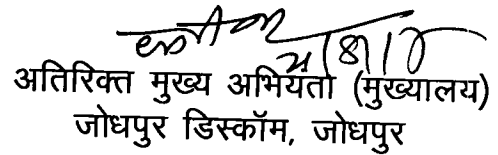 अतिरिक्त मुख्य अभियंता (मुख्यालय)
जोधपुर डिस्कॉम, जोधपुर